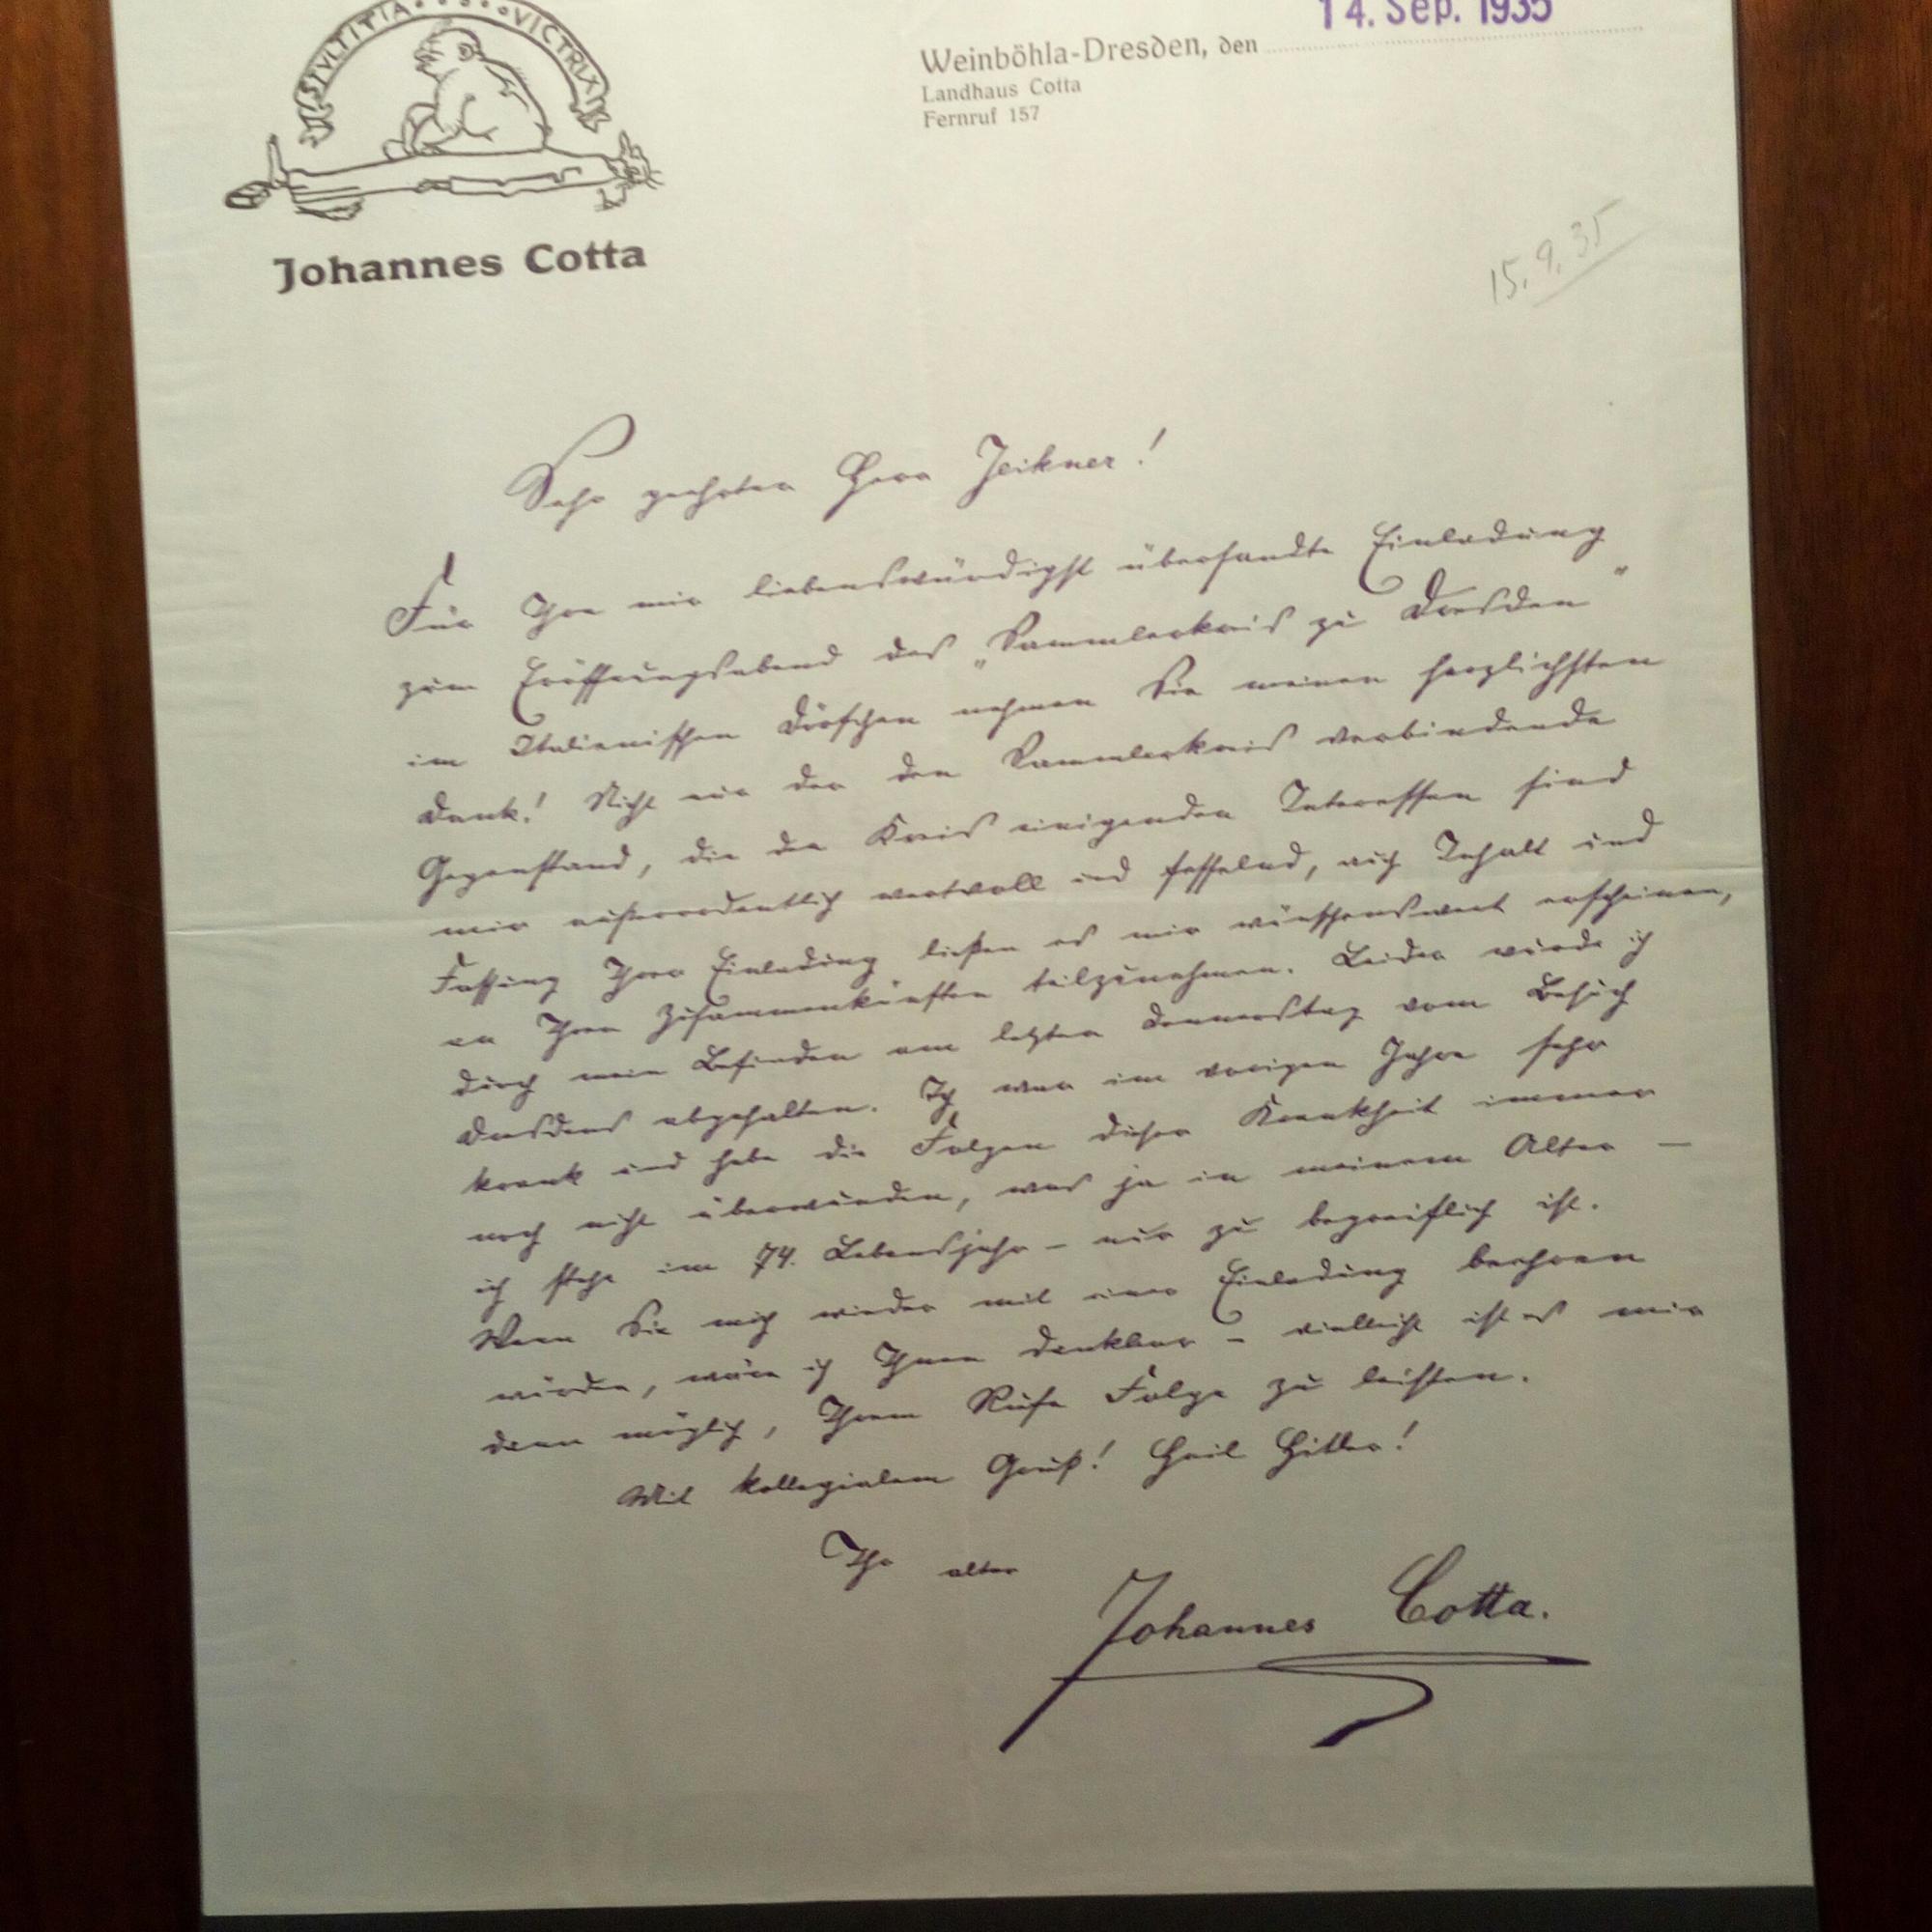 STVLTITIA · · · · · · VICTRIX
14. Sep. 1935
Weinböhla-Dresden, den
Landhaus Cotta
Fernruf 157
Johannes Cotta
15. 9. 35
Sehr geehrter Herr Zeikner!
Für Ihre mir liebenswürdigst übersandte Einladung
zum Eröffnungsabend des „Sammlerkreis zu Dresden"
im Italienischen Dörfchen nehmen Sie meinen herzlichsten
Dank! Nicht nur der den Sammlerkreis verbindende
Gegenstand, die den Kreis einigenden Interessen sind
mir außerordentlich wertvoll und fesselnd, auch Inhalt und
Fassung Ihrer Einladung ließen es mir wünschenswert erscheinen,
an Ihren Zusammenkünften teilzunehmen. Leider wurde ich
durch mein Befinden am letzten Donnerstag vom Besuch
Dresdens abgehalten. Ich war im vorigen Jahre sehr
krank und habe die Folgen dieser Krankheit immer
noch nicht überwunden, was ja in meinem Alter –
ich stehe im 74. Lebensjahr – nur zu begreiflich ist.
Wenn Sie mich wieder mit einer Einladung beehren
würden, wäre ich Ihnen dankbar – vielleicht ist es mir
dann möglich, Ihrem Rufe Folge zu leisten.
Mit kollegialem Gruß! Heil Hitler!
Ihr alter
Johannes Cotta.